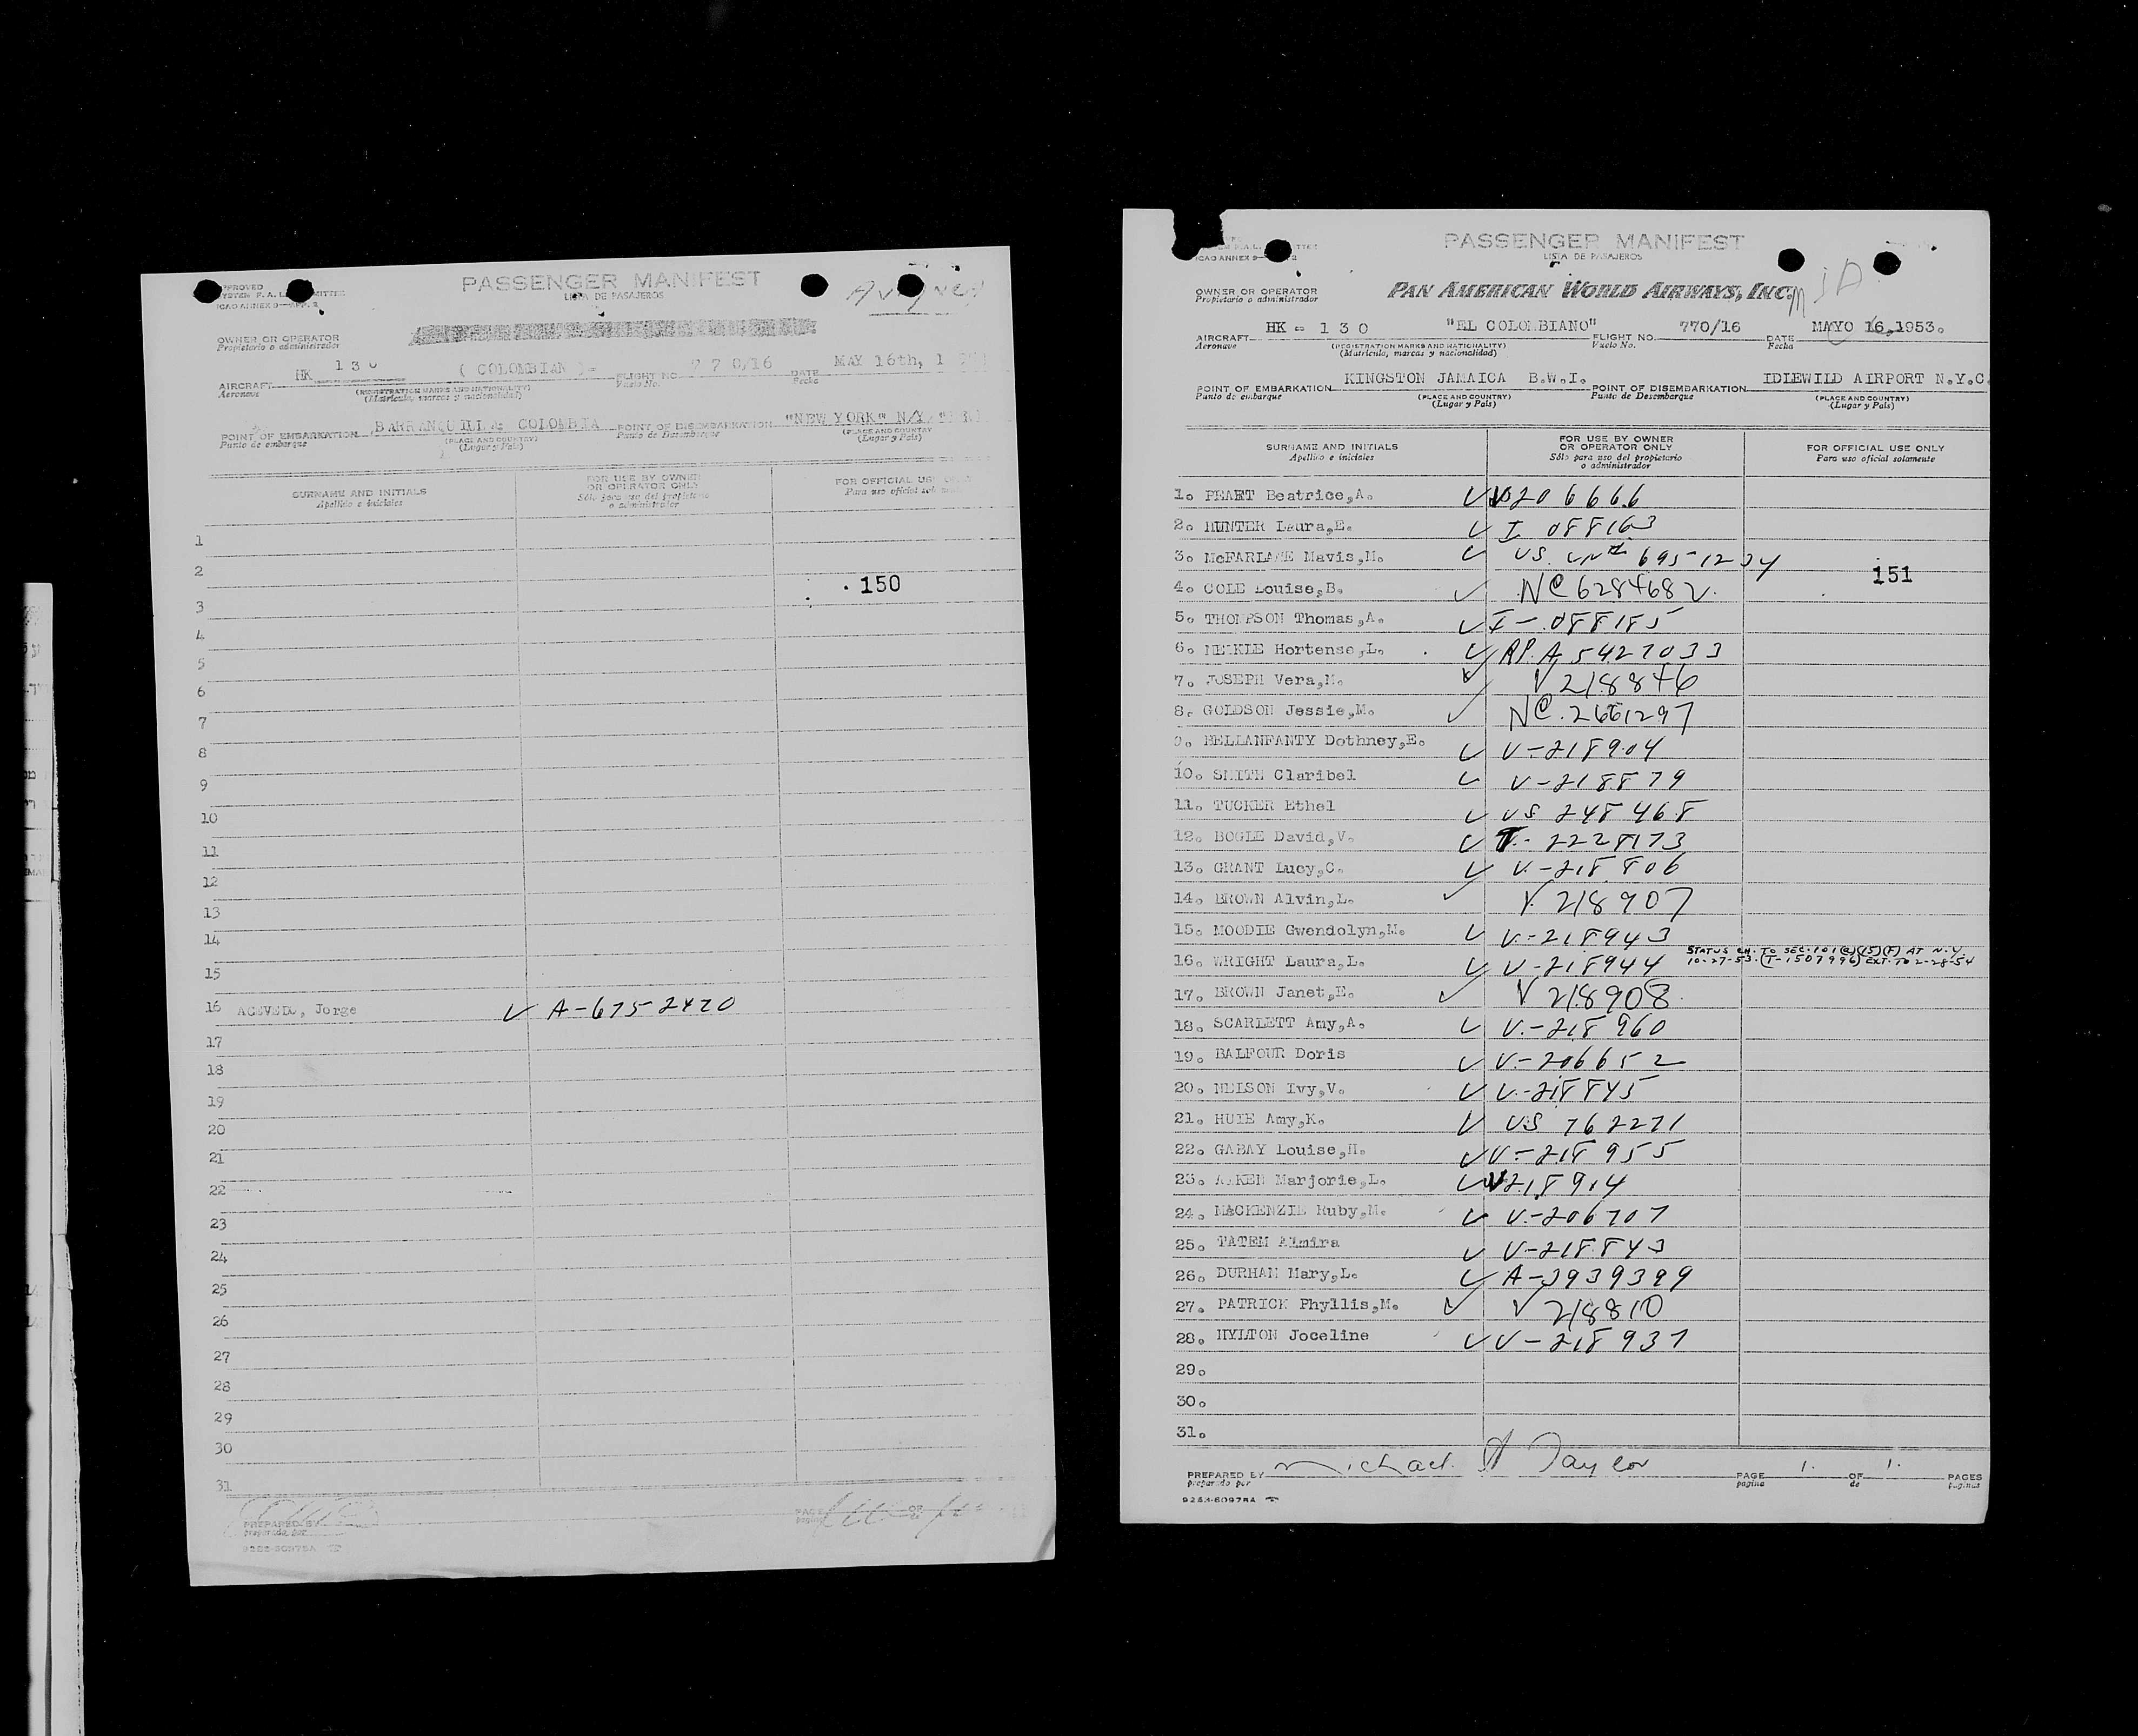 PASSENGER MANIFEST
LISTA DE PASAJEROS
ICAO ANNEX 9
OWNER OR OPERATOR
Propietario o administrador
AIRCRAFT HK 130 ( COLOMBIAN )- FLIGHT NO 770/16 DATE MAY 16th, 1
Aeronave (REGISTRATION MARKS AND NATIONALITY) Vuelo No. Fecha
(Matrícula, marcas y nacionalidad)
POINT OF EMBARKATION BARRANQUILLA COLOMBIA POINT OF DISEMBARKATION "NEW YORK" N/Y
Punto de embarque (PLACE AND COUNTRY) Punto de Desembarque (PLACE AND COUNTRY
(Lugar y País) (Lugar y País)
SURNAME AND INITIALS FOR USE BY OWNER OR OPERATOR ONLY FOR OFFICIAL USE
Apellido e iniciales Sólo para uso del propietario o administrador Para uso oficial
1
2
150
3
4
5
6
7
8
9
10
11
12
13
14
15
16 ACEVEDO, Jorge A-6752420
17
18
19
20
21
22
23
24
25
26
27
28
29
30
31
PREPARED BY PAGE OF
preparado por pagina
PASSENGER MANIFEST
LISTA DE PASAJEROS
ICAO ANNEX 9
OWNER OR OPERATOR PAN AMERICAN WORLD AIRWAYS, INC.
Propietario o administrador
AIRCRAFT HK - 130 "EL COLOMBIANO" FLIGHT NO. 770/16 DATE MAYO 16,1953.
Aeronave (REGISTRATION MARKS AND NATIONALITY) Vuelo No. Fecha
(Matrícula, marcas y nacionalidad)
POINT OF EMBARKATION KINGSTON JAMAICA B.W.I. POINT OF DISEMBARKATION IDLEWILD AIRPORT N.Y.C.
Punto de embarque (PLACE AND COUNTRY) Punto de Desembarque (PLACE AND COUNTRY)
(Lugar y País) (Lugar y País)
SURNAME AND INITIALS FOR USE BY OWNER OR OPERATOR ONLY FOR OFFICIAL USE ONLY
Apellido e iniciales Sólo para uso del propietario o administrador Para uso oficial solamente
1. PEART Beatrice,A. V206666
2. HUNTER Laura,E. I 088163
3. McFARLANE Mavis,M. US. 695-1234
151
4. COLE Louise,B. NC 6284682
5. THOMPSON Thomas,A. I-088185
6. MEIKLE Hortense,L. RP.A 5427033
7. JOSEPH Vera,M. V 218846
8. GOLDSON Jessie,M. NC. 2661297
9. BELLANFANTY Dothney,E. V-218904
10. SMITH Claribel V-218879
11. TUCKER Ethel US 248468
12. BOGLE David,V. T- 2228173
13. GRANT Lucy,C. V-218806
14. BROWN Alvin,L. V 218907
15. MOODIE Gwendolyn,M. V-218943
16. WRIGHT Laura,L. V-218944 STATUS CH. TO SEC. 101(a)(15)(F) AT N.Y.
10-27-53. (T-1507996) EXT. TO 2-28-54
17. BROWN Janet,E. V 218908
18. SCARLETT Amy,A. V-218960
19. BALFOUR Doris V-206652
20. NELSON Ivy,V. V-218845
21. HUIE Amy,K. US 762271
22. GABAY Louise,H. V-218955
23. AIKEN Marjorie,L. V218914
24. MACKENZIE Ruby,M. V-206707
25. TATEM Almira V-218843
26. DURHAM Mary,L. A-3939399
27. PATRICK Phyllis,M. V 218810
28. HYLTON Joceline V-218937
29.
30.
31.
PREPARED BY Michael A Taylor PAGE 1. OF 1. PAGES
preparado por pagina de paginas